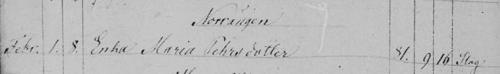 Norrängen
Febr. 1. 8. Enka Maria Pehrsdotter 81. 9 16 Slag